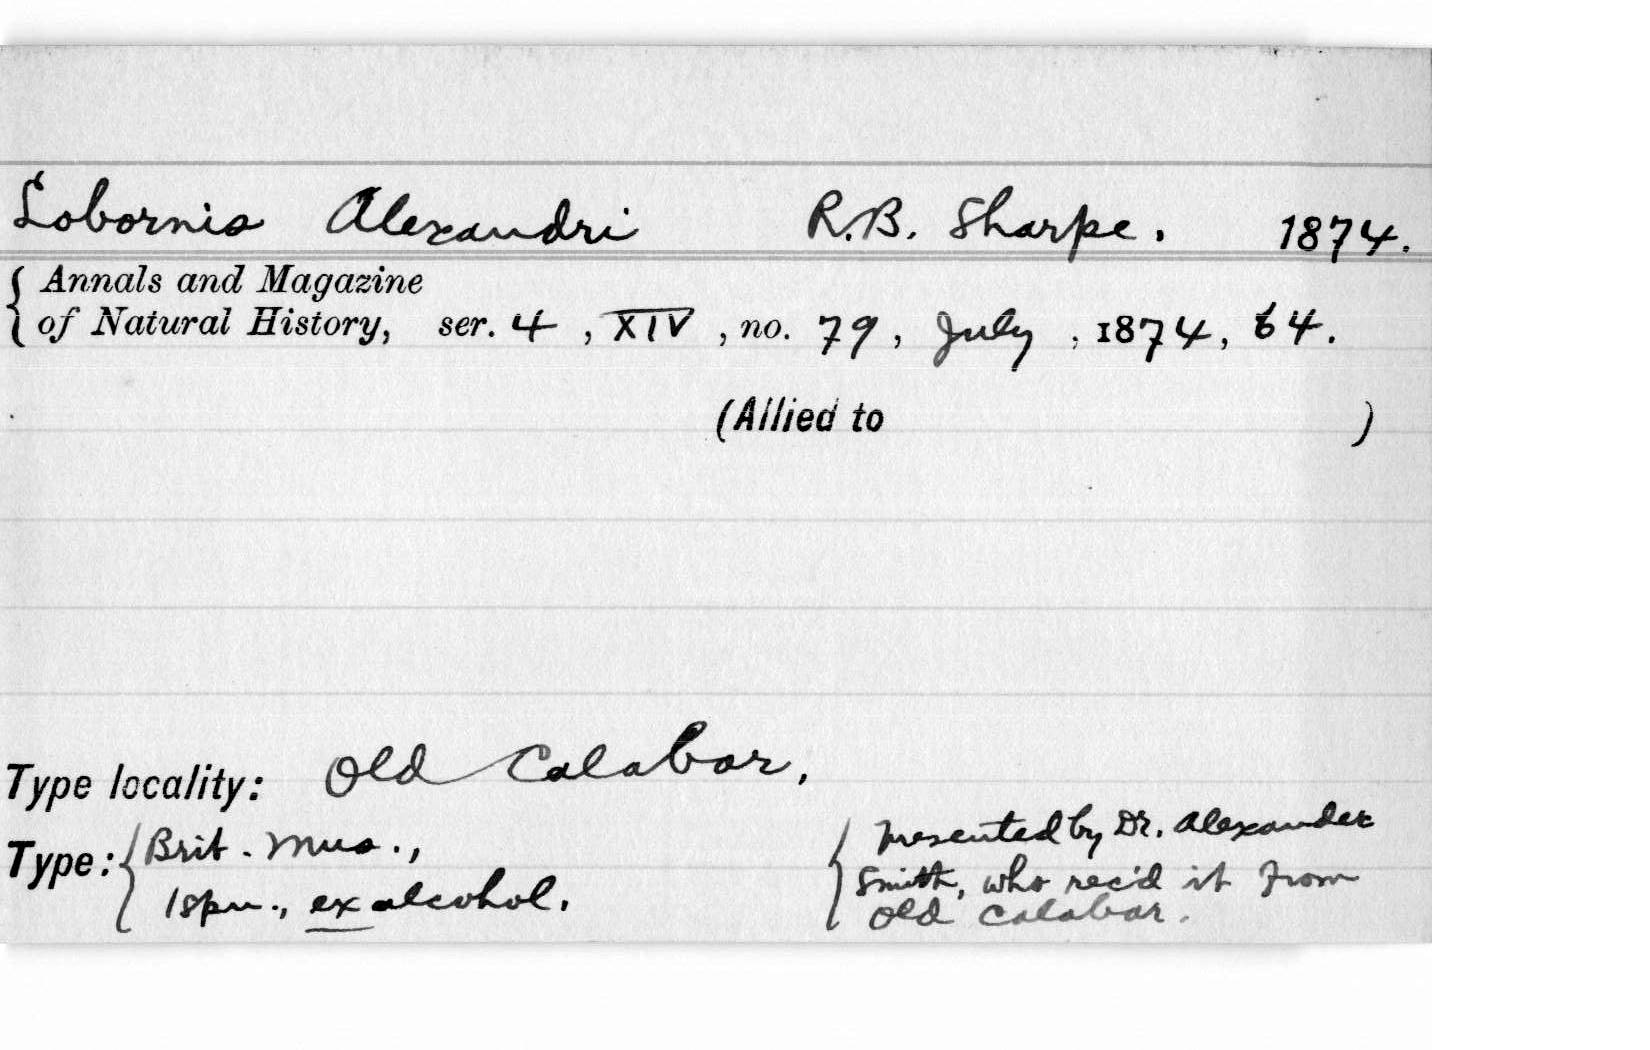 Lobornis Alexandri R.B. Sharpe. 1874.
Annals and Magazine
of Natural History, ser. 4, XIV, no. 79, July, 1874, 64.
(Allied to )
Type locality: Old Calabar.
Type: Brit. Mus.,
1 spm., ex alcohol.
presented by Dr. Alexander
Smith, who rec'd it from
Old Calabar.